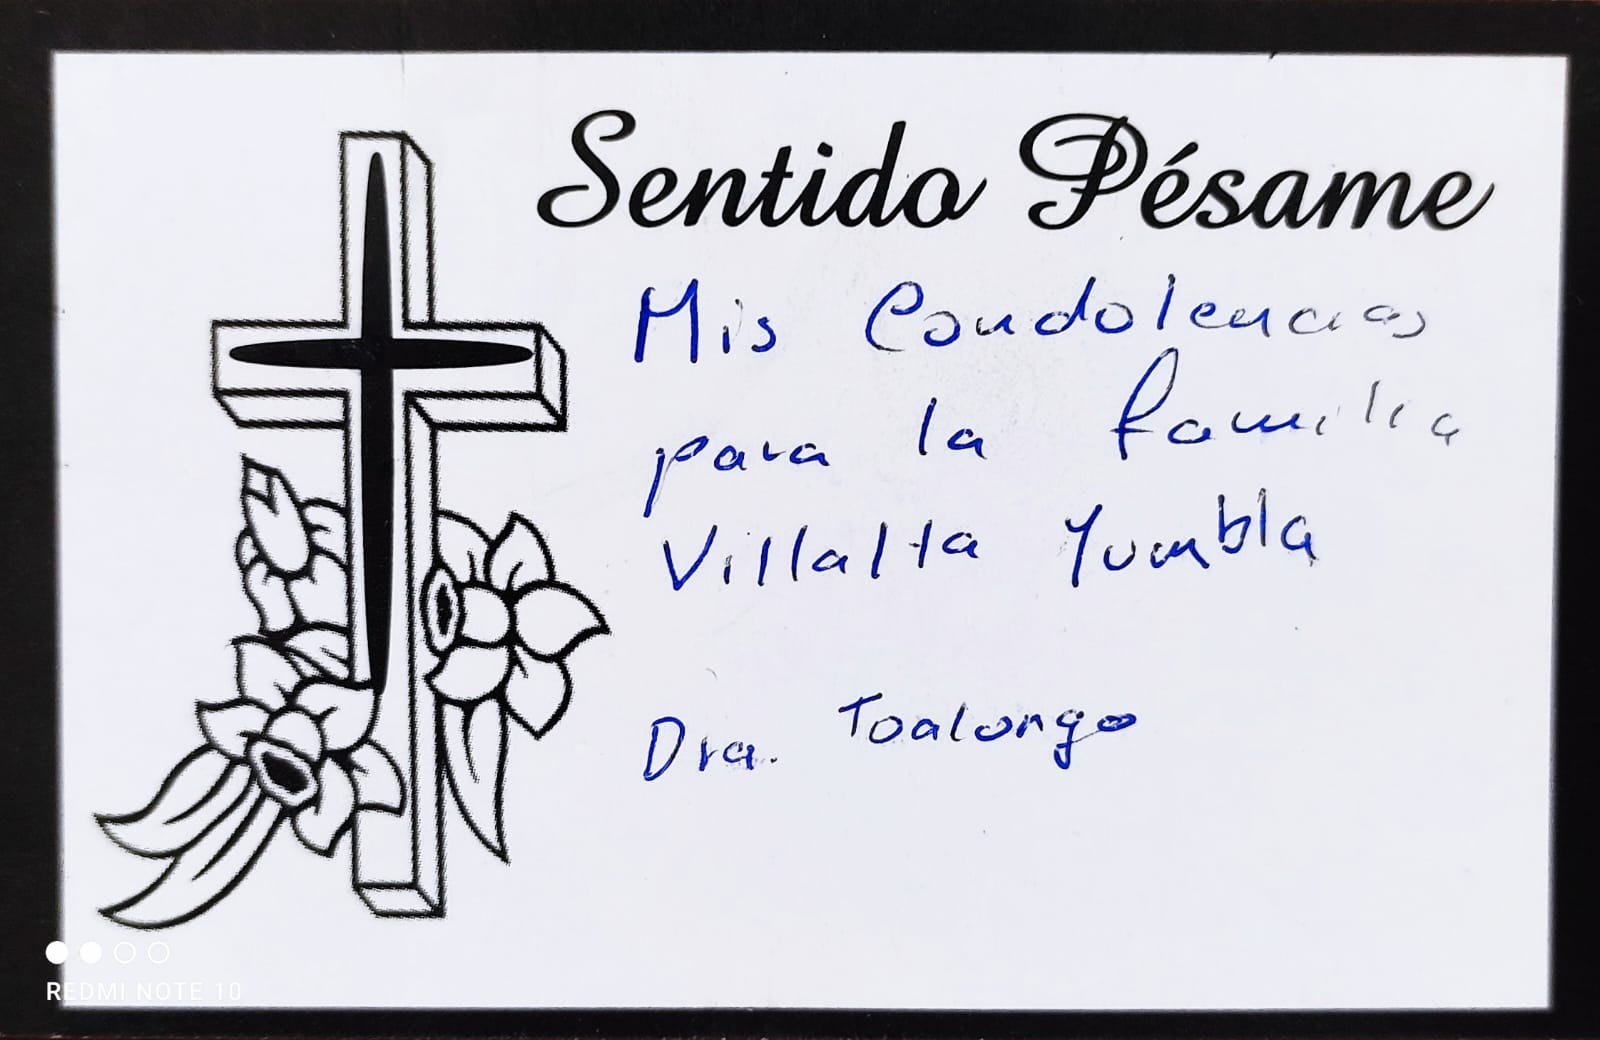 Sentido Pésame
Mis Condolencias
para la familia
Villalta Yumbla
Dra. Toalongo
REDMI NOTE 10